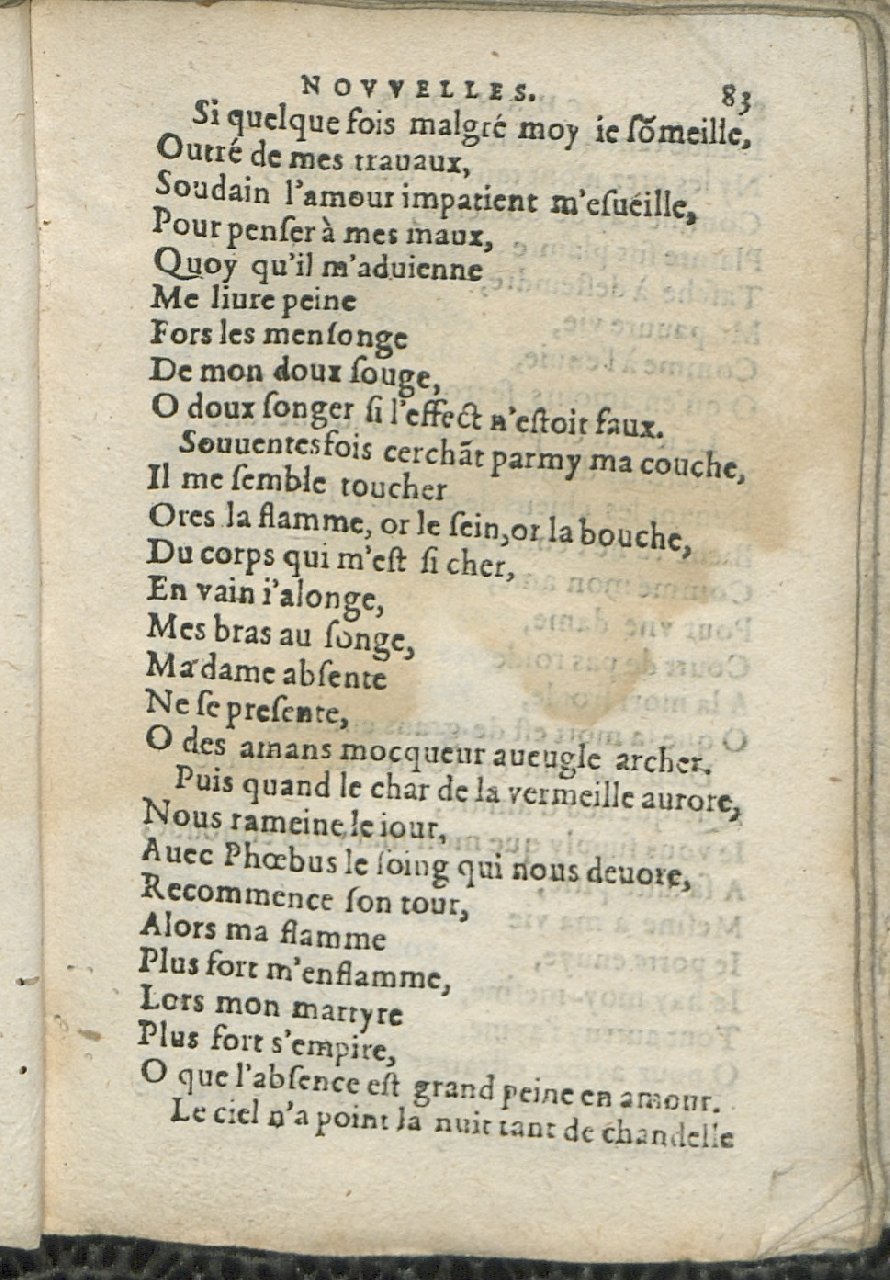 NOVVELLES. 83
Si quelque fois malgré moy ie sõmeille,
Outré de mes trauaux,
Soudain l'amour impatient m'esueille,
Pour penser à mes maux,
Quoy qu'il m'aduienne
Me liure peine
Fors les mensonge
De mon doux souge,
O doux songer si l'effect n'estoit faux.
Souuentesfois cerchãt parmy ma couche,
Il me semble toucher
Ores la flamme, or le sein, or la bouche,
Du corps qui m'est si cher,
En vain i'alonge,
Mes bras au songe,
Madame absente
Ne se presente,
O des amans mocqueur aueugle archer.
Puis quand le char de la vermeille aurore,
Nous rameine le iour,
Auec Phœbus le soing qui nous deuore,
Recommence son tour,
Alors ma flamme
Plus fort m'enflamme,
Lors mon martyre
Plus fort s'empire,
O que l'absence est grand peine en amour.
Le ciel n'a point la nuit tant de chandelle